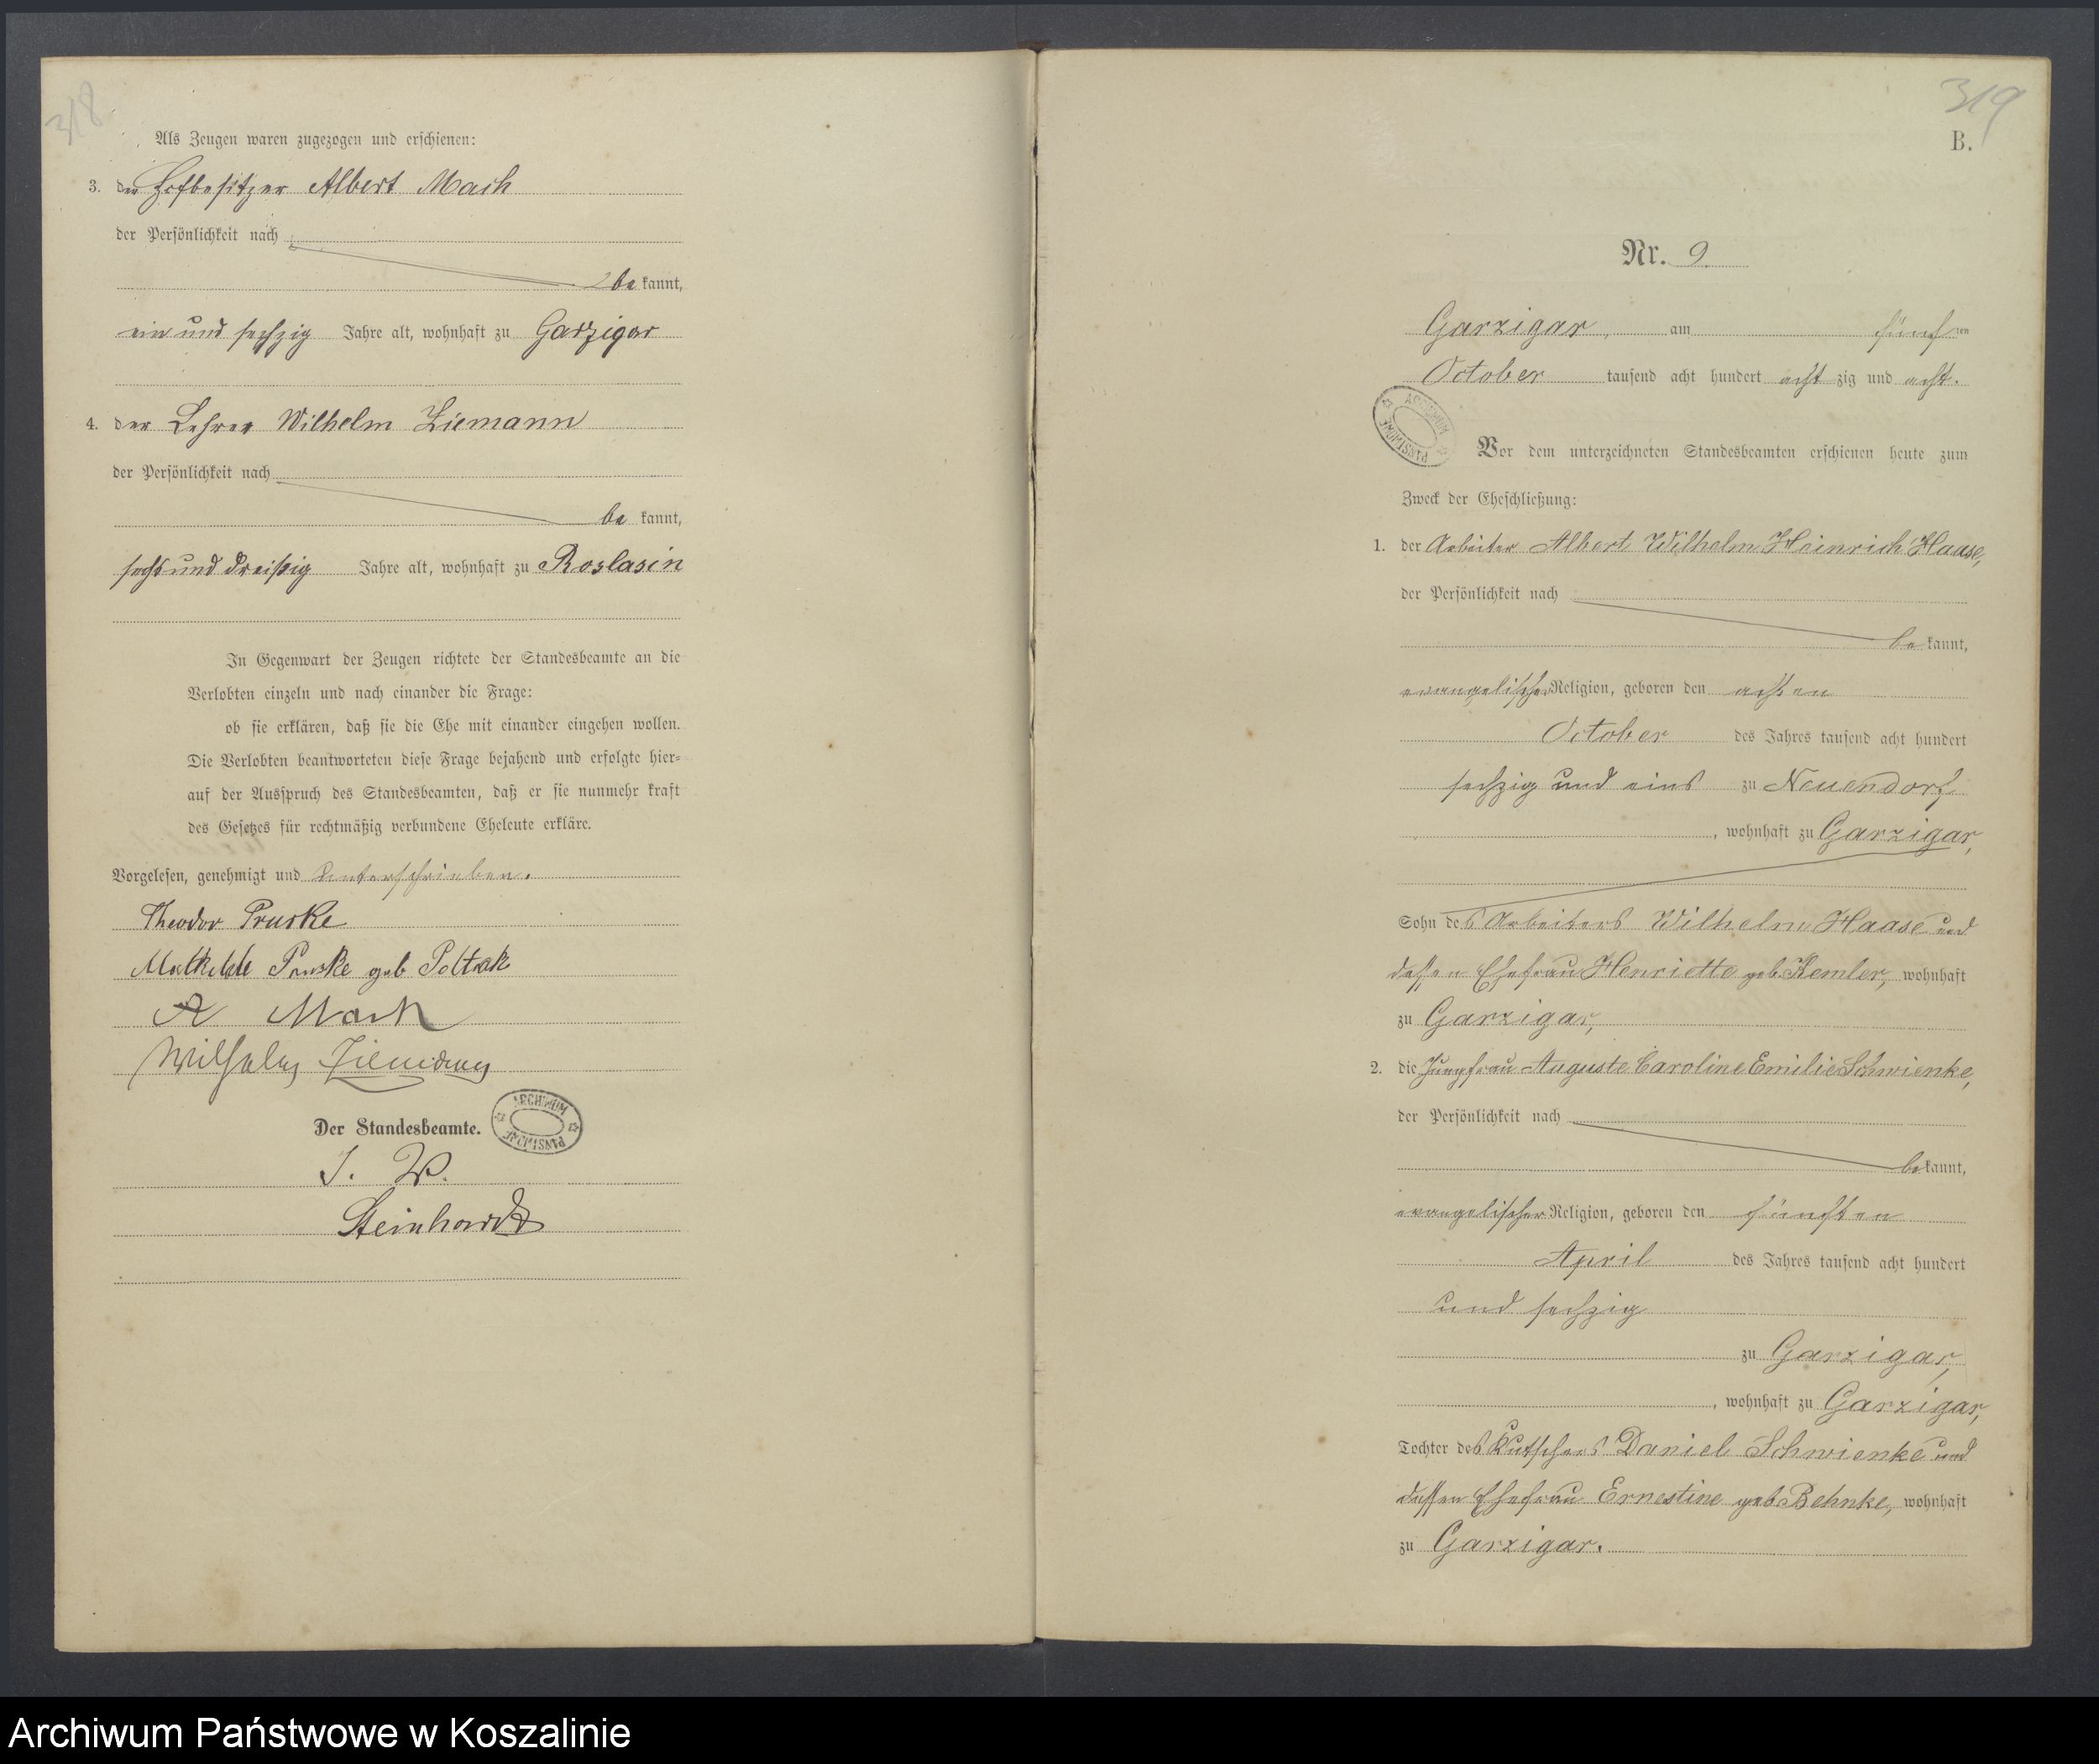 318
Als Zeugen waren zugezogen und erschienen:
3. der Hofbesitzer Albert Mach
der Persönlichkeit nach
be kannt,
ein und sechzig Jahre alt, wohnhaft zu Garzigar
4. der Lehrer Wilhelm Ziemann
der Persönlichkeit nach
be kannt,
sechs und dreißig Jahre alt, wohnhaft zu Roslasin
In Gegenwart der Zeugen richtete der Standesbeamte an die
Verlobten einzeln und nach einander die Frage:
ob sie erklären, daß sie die Ehe mit einander eingehen wollen.
Die Verlobten beantworteten diese Frage bejahend und erfolgte hier-
auf der Ausspruch des Standesbeamten, daß er sie nunmehr kraft
des Gesetzes für rechtmäßig verbundene Eheleute erkläre.
Vorgelesen, genehmigt und unterschrieben.
Theodor Pruske
Mathilde Pruske geb Poltrok
A Mach
Wilhelm Ziemann
Der Standesbeamte.
ARCHIWUM PAŃSTWOWE
I. V.
Steinhardt
319
B.
Nr. 9.
Garzigar, am fünf ten
October tausend acht hundert acht zig und acht.
ARCHIWUM PAŃSTWOWE
Vor dem unterzeichneten Standesbeamten erschienen heute zum
Zweck der Eheschließung:
1. der Arbeiter Albert Wilhelm Heinrich Haase,
der Persönlichkeit nach
be kannt,
evangelischer Religion, geboren den achten
October des Jahres tausend acht hundert
sechzig und eins zu Neuendorf
, wohnhaft zu Garzigar,
Sohn des Arbeiters Wilhelm Haase und
dessen Ehefrau Henriette geb. Kemler, wohnhaft
zu Garzigar,
2. die Jungfrau Auguste Caroline Emilie Schwienke,
der Persönlichkeit nach
be kannt,
evangelischer Religion, geboren den fünften
April des Jahres tausend acht hundert
und sechzig
zu Garzigar,
, wohnhaft zu Garzigar,
Tochter des Kutschers Daniel Schwienke und
dessen Ehefrau Ernestine geb. Behnke, wohnhaft
zu Garzigar.
Archiwum Państwowe w Koszalinie